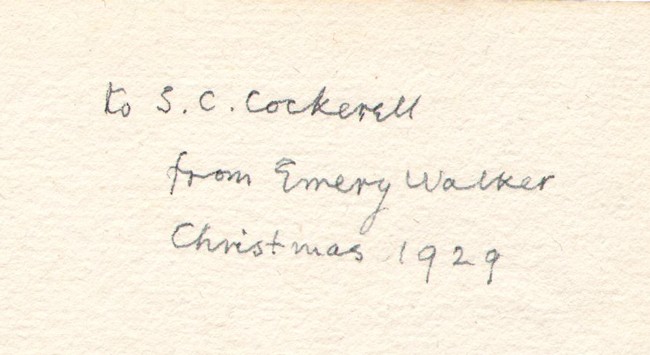 to S. C. Cockerell
from Emery Walker
Christmas 1929